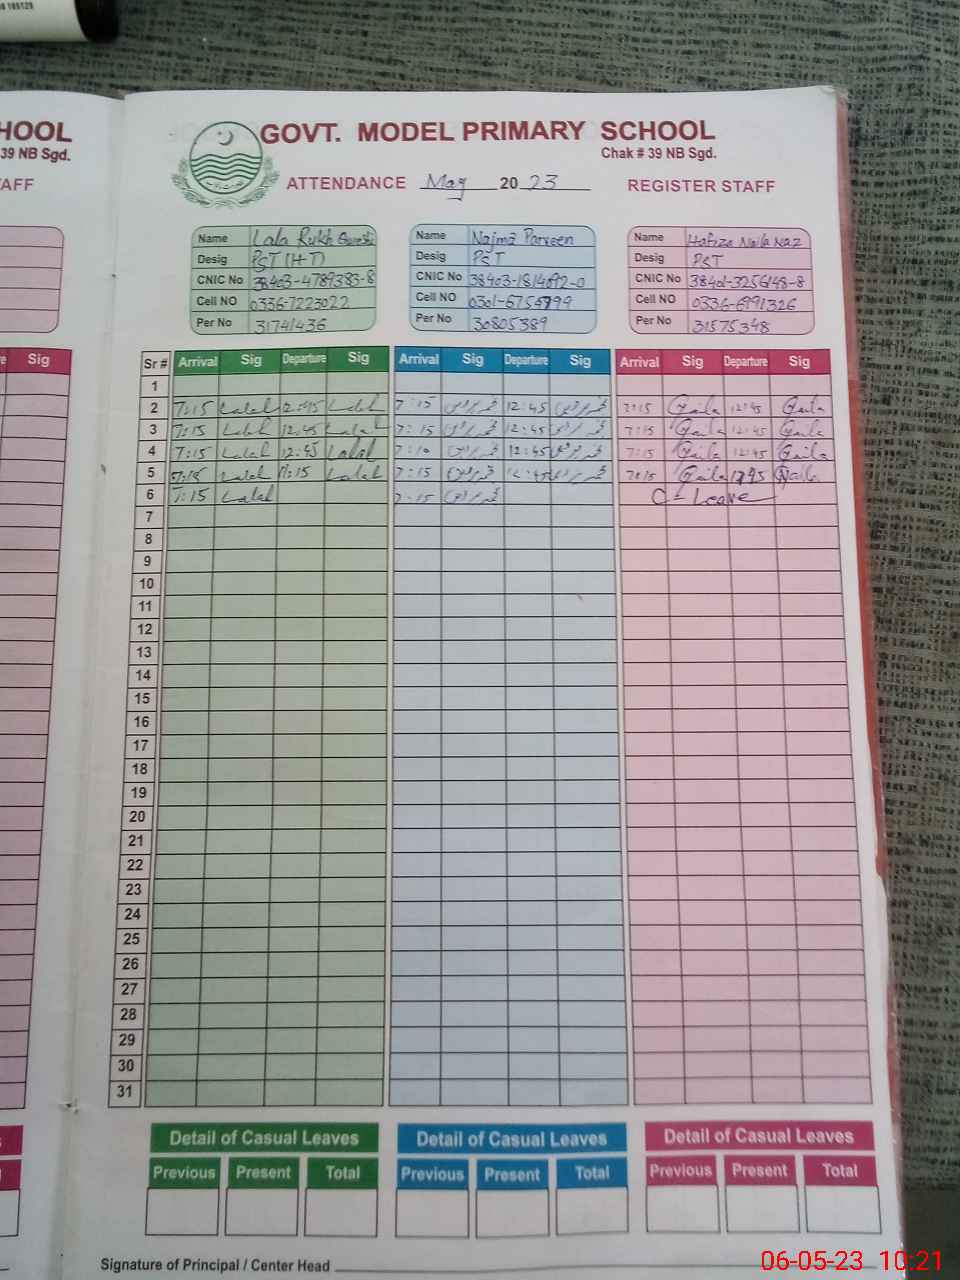 HOOL
39 NB Sgd.
AFF
Sig
GOVT. MODEL PRIMARY SCHOOL
Chak # 39 NB Sgd.
ATTENDANCE May 2023 REGISTER STAFF
Name Lala Rukh
Desig PST (H-T)
CNIC No 38403-4789383-8
Cell NO 0336-7223022
Per No 31741436
Name Najma Parveen
Desig PST
CNIC No 38403-1814092-0
Cell NO 0301-6754799
Per No 30805389
Name Hafiza Naila Naz
Desig PST
CNIC No 38401-3256148-8
Cell NO 0336-6991326
Per No 31575348
Sr # Arrival Sig Departure Sig Arrival Sig Departure Sig Arrival Sig Departure Sig
1
2 7:15 Lalal 12:45 Lalal 7:15 12:45 7:15 Naila 12:45 Naila
3 7:15 Lalal 12:45 Lalal 7:15 12:45 7:15 Naila 12:45 Naila
4 7:15 Lalal 12:45 Lalal 7:10 12:45 7:15 Naila 12:45 Naila
5 7:15 Lalal 11:15 Lalal 7:15 12:45 7:15 Naila 12:45 Naila
6 7:15 Lalal 7:15 C-Leave
7
8
9
10
11
12
13
14
15
16
17
18
19
20
21
22
23
24
25
26
27
28
29
30
31
Detail of Casual Leaves Detail of Casual Leaves Detail of Casual Leaves
Previous Present Total Previous Present Total Previous Present Total
Signature of Principal / Center Head
06-05-23 10:21